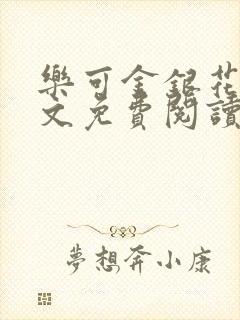 樂可金銀花
文免費閱讀
夢想奔小康